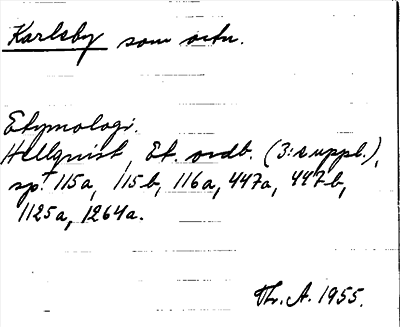 Karlsby som ortn.
Etymologi.
Hellquist, Et. ordb. (3:e uppl.),
sp. 115a, 115b, 116a, 447a, 447b,
1125a, 1264a.
Thr. A. 1955.